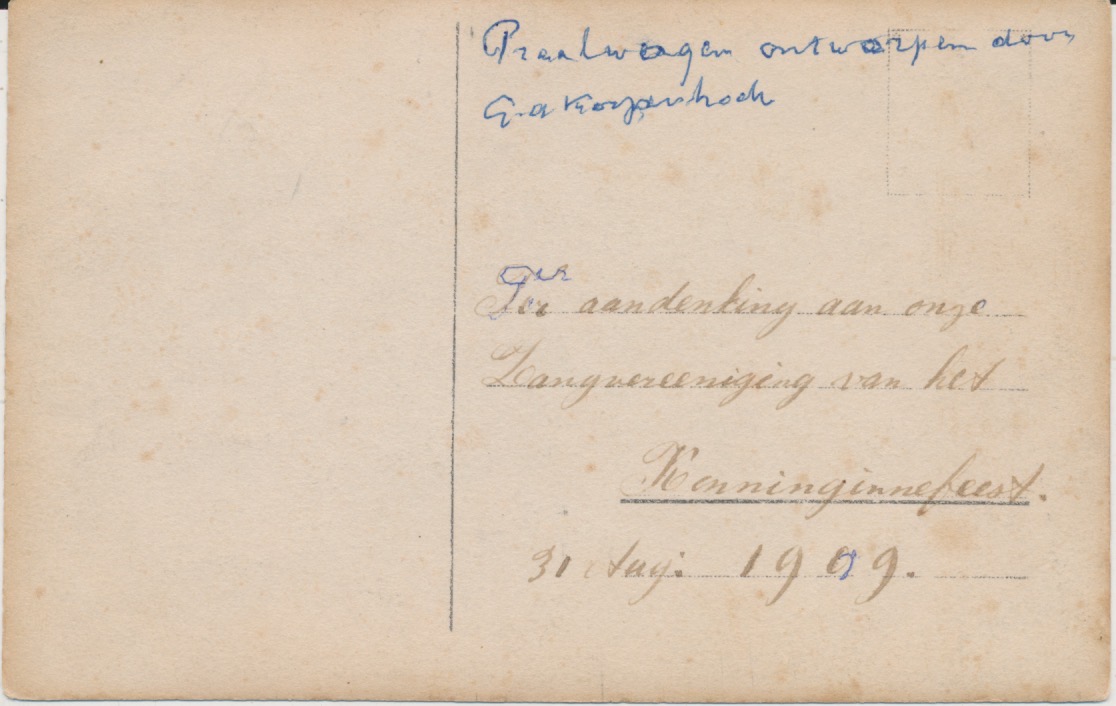 Praalwagen ontworpen door
Ter
Ter aandenking aan onze
Zangvereeniging van het
Konninginnefeest.
31 Aug: 1909.